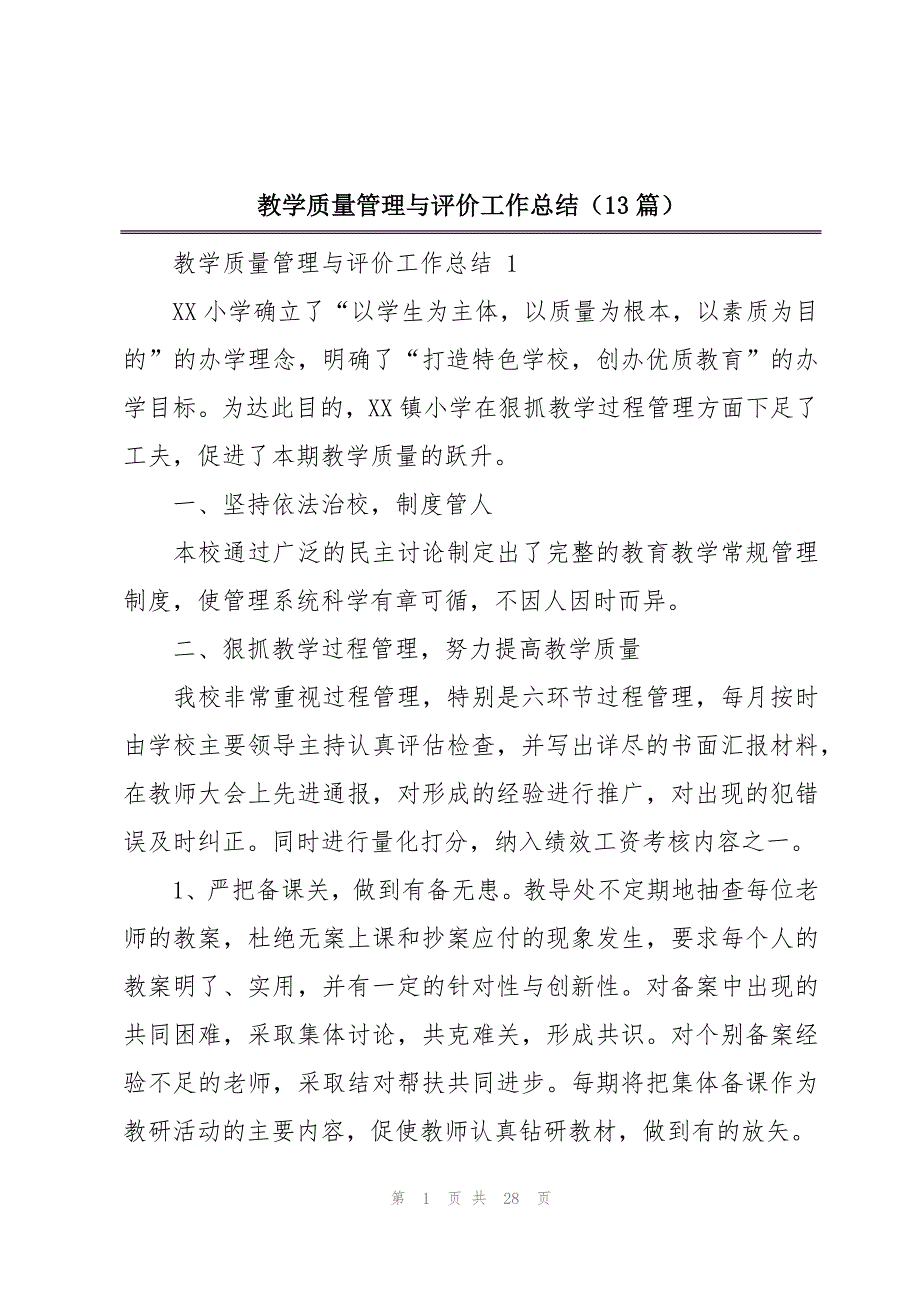 教学质量管理与评价工作总结（13 篇）
教学质量管理与评价工作总结 1
XX 小学确立了“以学生为主体，以质量为根本，以素质为目
的”的办学理念，明确了“打造特色学校，创办优质教育”的办
学目标。为达此目的，XX 镇小学在狠抓教学过程管理方面下足了
工夫，促进了本期教学质量的跃升。
一、坚持依法治校，制度管人
本校通过广泛的民主讨论制定出了完整的教育教学常规管理
制度，使管理系统科学有章可循，不因人因时而异。
二、狠抓教学过程管理，努力提高教学质量
我校非常重视过程管理，特别是六环节过程管理，每月按时
由学校主要领导主持认真评估检查，并写出详尽的书面汇报材料，
在教师大会上先进通报，对形成的经验进行推广，对出现的犯错
误及时纠正。同时进行量化打分，纳入绩效工资考核内容之一。
1、严把备课关，做到有备无患。教导处不定期地抽查每位老
师的教案，杜绝无案上课和抄案应付的现象发生，要求每个人的
教案明了、实用，并有一定的针对性与创新性。对备案中出现的
共同困难，采取集体讨论，共克难关，形成共识。对个别备案经
验不足的老师，采取结对帮扶共同进步。每期将把集体备课作为
教研活动的主要内容，促使教师认真钻研教材，做到有的放矢。
第 1 页 共 28 页